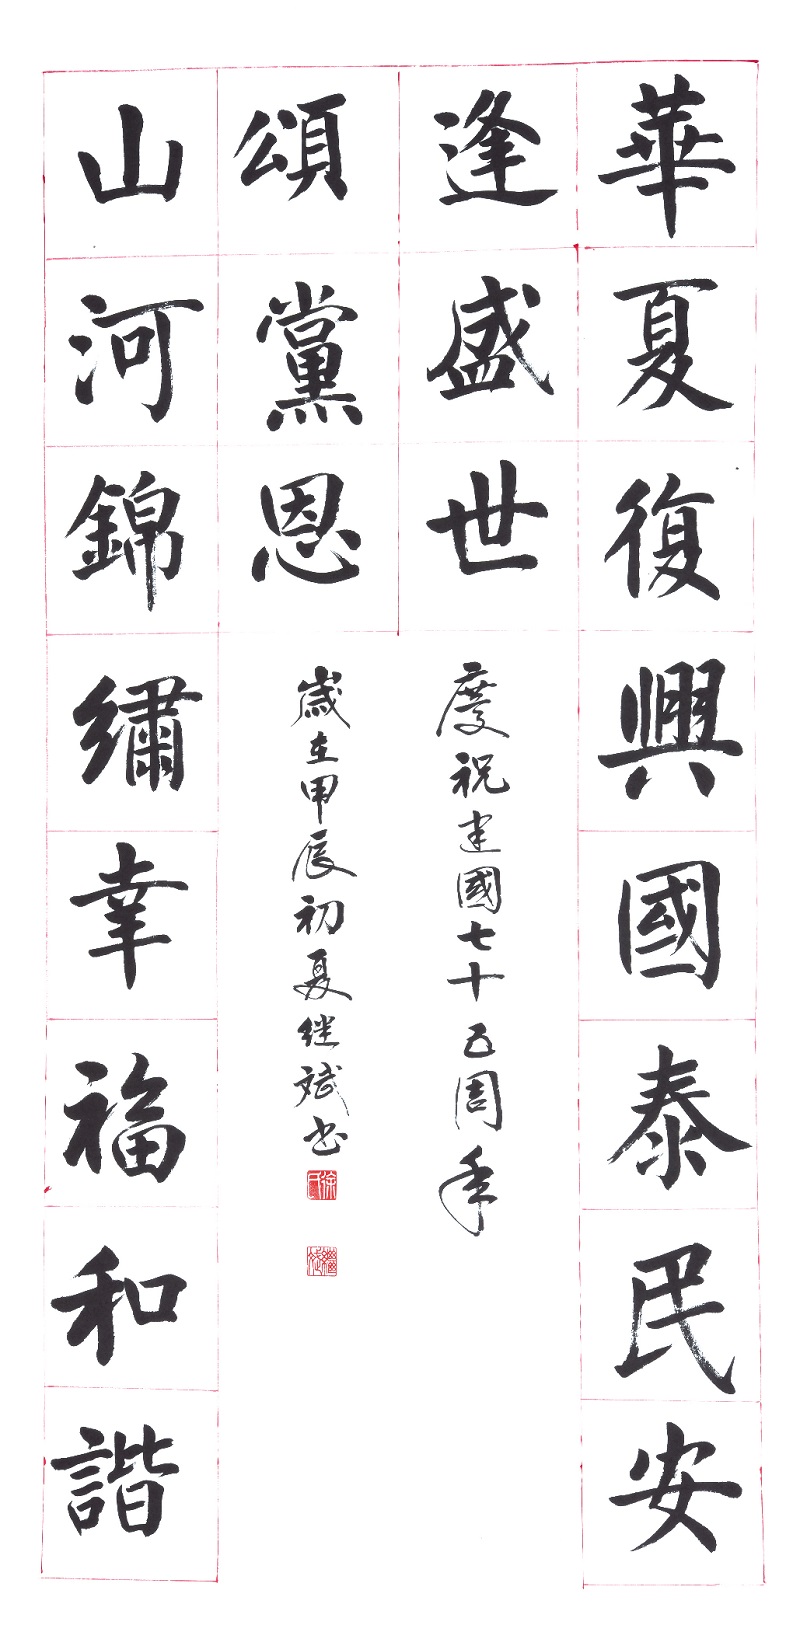 華夏復興國泰民安
逢盛世
頌黨恩
山河錦繡幸福和諧
慶祝建國七十五周年
歲在甲辰初夏继斌书